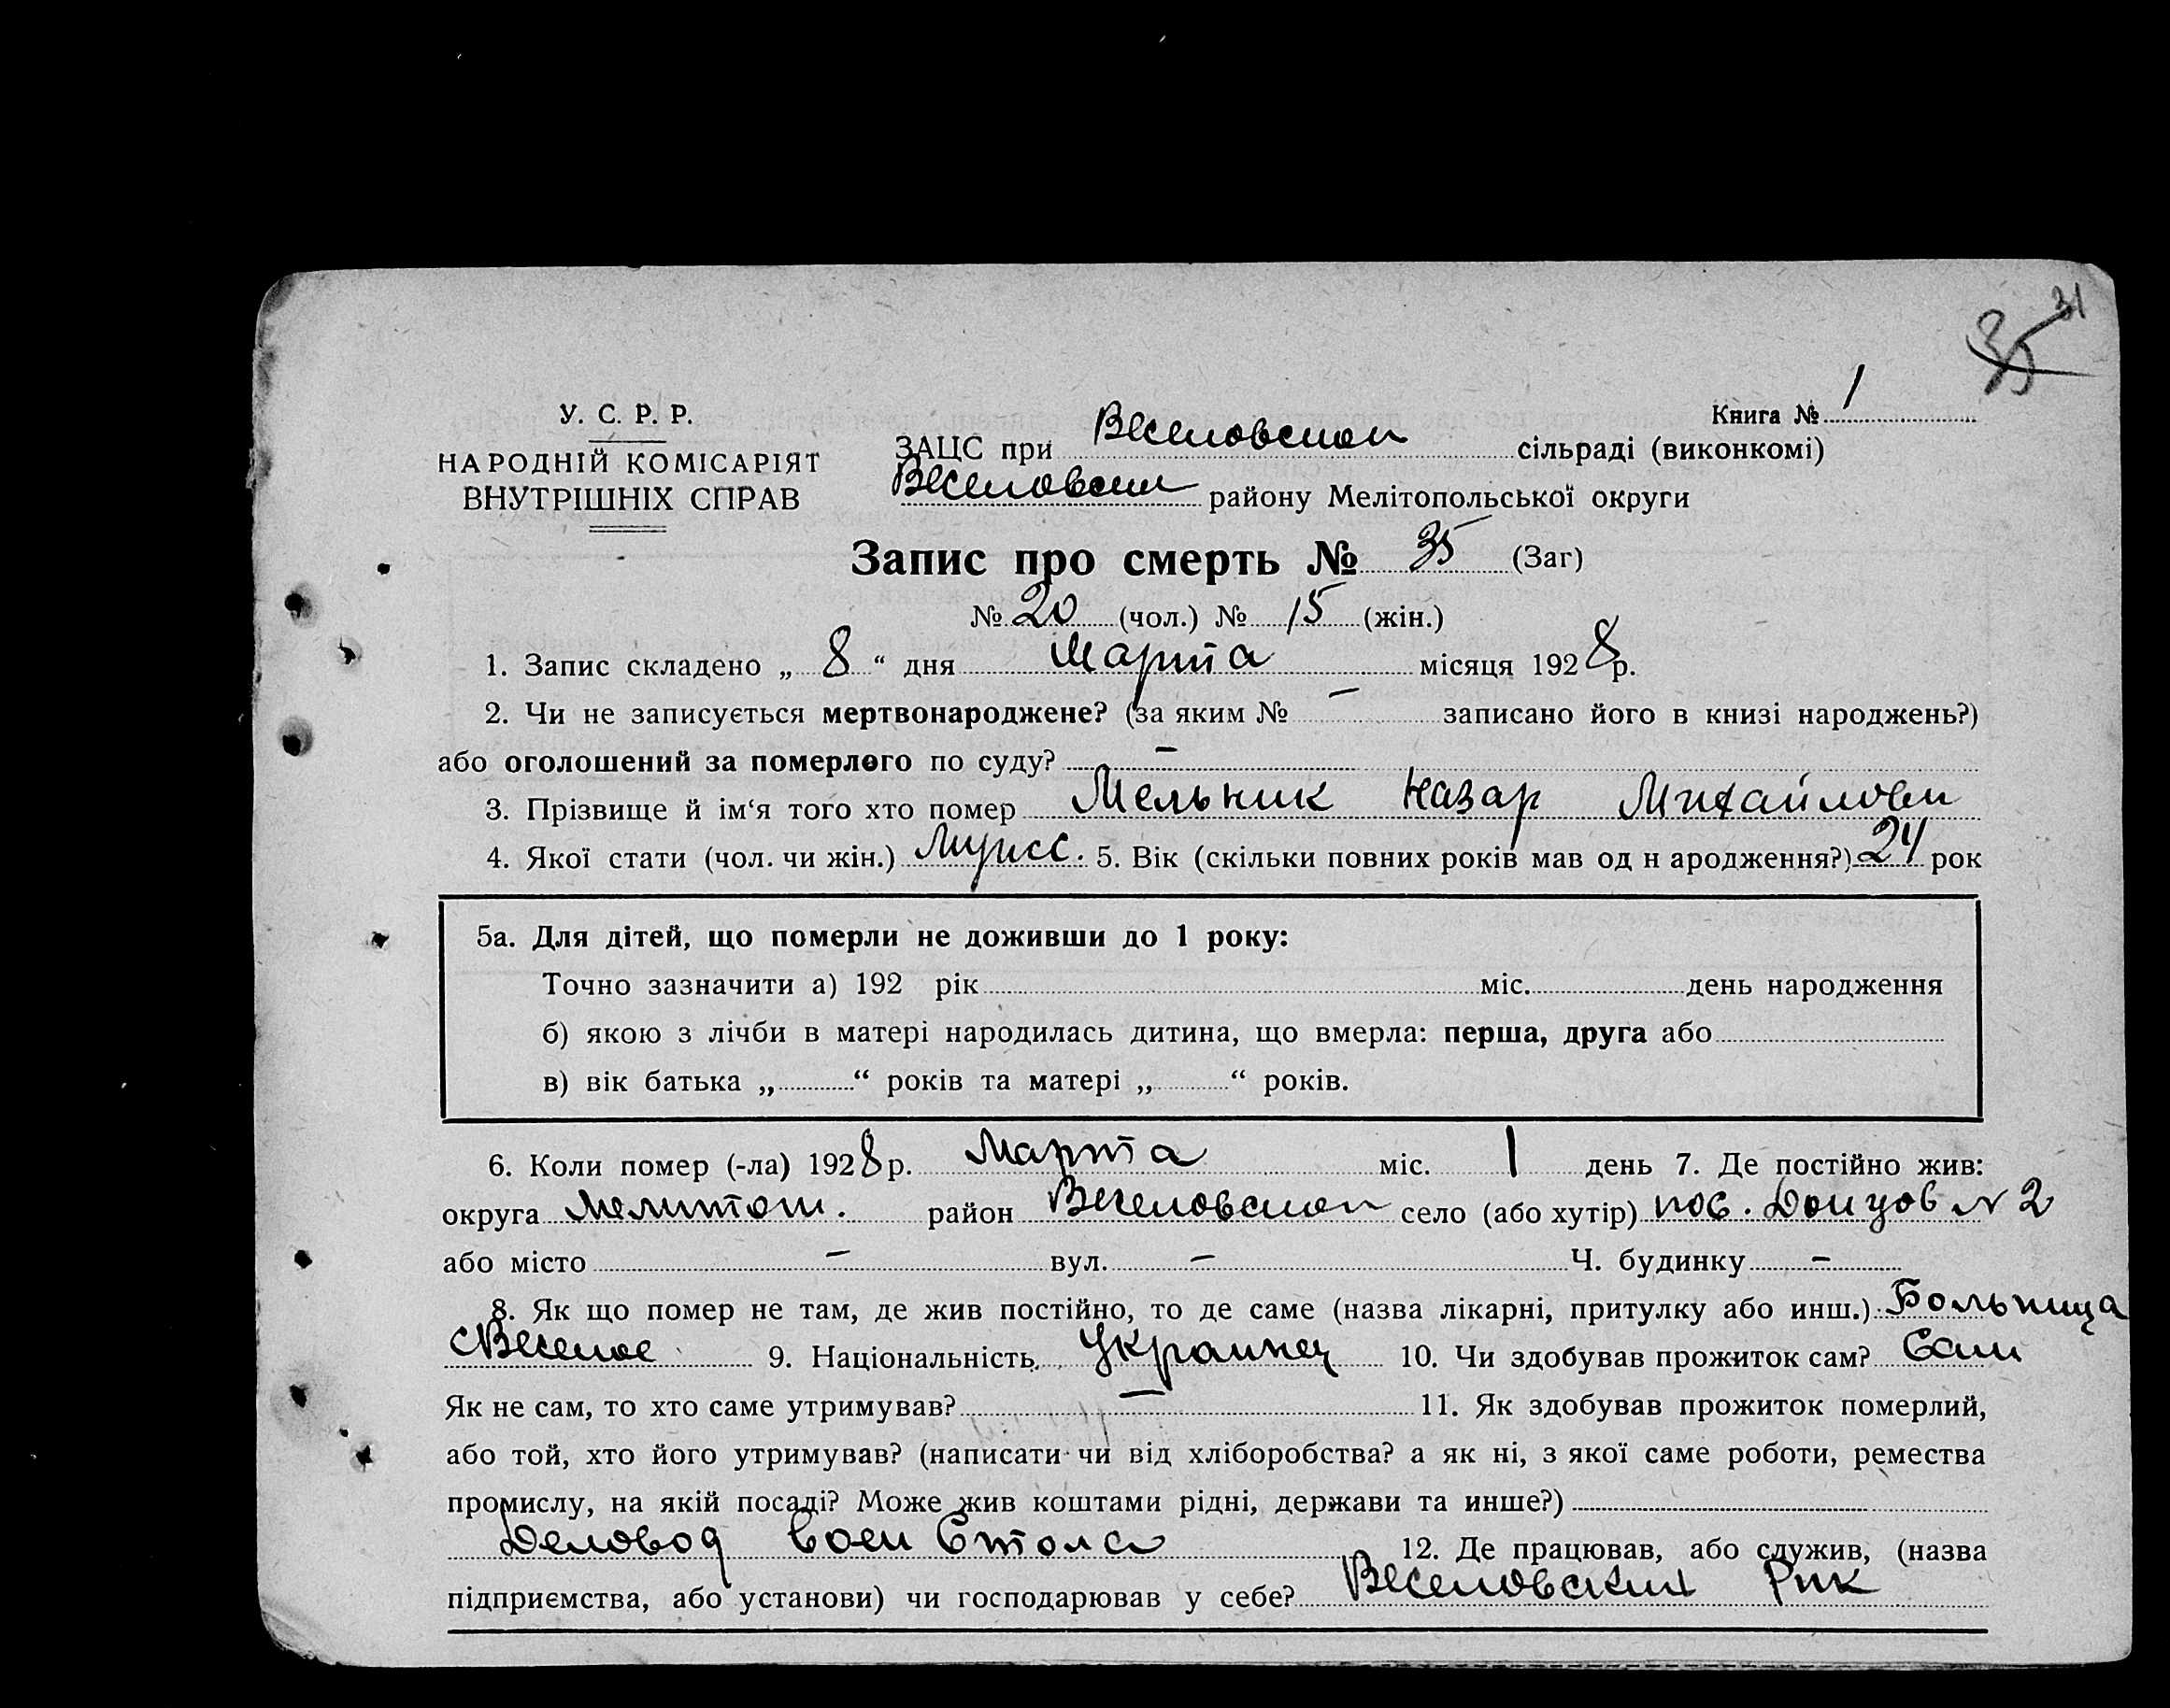 31
35
У. С. Р. Р.
Книга № 1
НАРОДНІЙ КОМІСАРІЯТ
ВНУТРІШНІХ СПРАВ
ЗАЦС при Веселовском сільраді (виконкомі)
Веселовском району Мелітопольської округи
Запис про смерть № 35 (Заг)
№ 20 (чол.) № 15 (жін.)
1. Запис складено „ 8 “ дня Марта місяця 1928 р.
2. Чи не записується мертвонароджене? (за яким № – записано його в книзі народжень?)
або оголошений за померлого по суду? –
3. Прізвище й ім‘я того хто помер Мельник Назар Михайлови
4. Якої стати (чол. чи жін.) Мужс. 5. Вік (скільки повних років мав од н ародження?) 24 рок
5а. Для дітей, що померли не доживши до 1 року:
Точно зазначити а) 192 рік міс. день народження
б) якою з лічби в матері народилась дитина, що вмерла: перша, друга або
в) вік батька „ “ років та матері „ “ років.
6. Коли помер (-ла) 1928 р. Марта міс. 1 день 7. Де постійно жив:
округа Мелитоп. район Веселовском село (або хутір) пос. Донцов N 2
або місто – вул. – Ч. будинку –
8. Як що помер не там, де жив постійно, то де саме (назва лікарні, притулку або инш.) Больница
с Веселое 9. Національність Украинец 10. Чи здобував прожиток сам? Сам
Як не сам, то хто саме утримував? – 11. Як здобував прожиток померлий,
або той, хто його утримував? (написати чи від хліборобства? а як ні, з якої саме роботи, ремества
промислу, на якій посаді? Може жив коштами рідні, держави та инше?)
Деловод Воен Стола 12. Де працював, або служив, (назва
підприємства, або установи) чи господарював у себе? Веселовский Рик